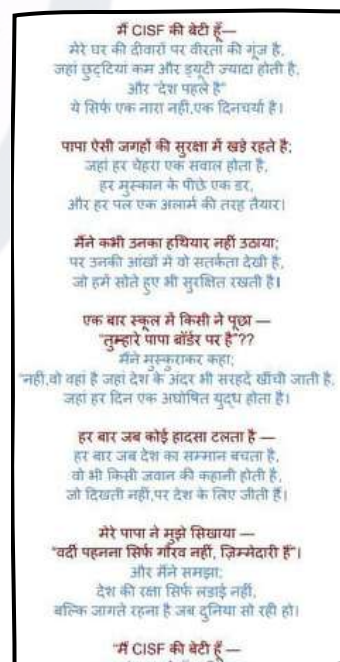 मैं CISF की बेटी हूँ—
मेरे घर की दीवारों पर वीरता की गूंज है,
जहां छुट्टियां कम और ड्यूटी ज्यादा होती है,
और "देश पहले है"
ये सिर्फ एक नारा नहीं,एक दिनचर्या है।
पापा ऐसी जगहों की सुरक्षा में खड़े रहते है;
जहां हर चेहरा एक सवाल होता है,
हर मुस्कान के पीछे एक डर,
और हर पल एक अलार्म की तरह तैयार।
मैंने कभी उनका हथियार नहीं उठाया;
पर उनकी आंखों में वो सतर्कता देखी है,
जो हमें सोते हुए भी सुरक्षित रखती है।
एक बार स्कूल में किसी ने पूछा —
"तुम्हारे पापा बॉर्डर पर है"??
मैंने मुस्कुराकर कहा;
"नहीं,वो वहां है जहां देश के अंदर भी सरहदें खींची जाती है,
जहां हर दिन एक अघोषित युद्ध होता है।
हर बार जब कोई हादसा टलता है —
हर बार जब देश का सम्मान बचता है,
वो भी किसी जवान की कहानी होती है,
जो दिखती नहीं,पर देश के लिए जीती हैं।
मेरे पापा ने मुझे सिखाया —
"वर्दी पहनना सिर्फ गौरव नहीं, ज़िम्मेदारी हैं"।
और मैंने समझा;
देश की रक्षा सिर्फ लड़ाई नहीं,
बल्कि जागते रहना है जब दुनिया सो रही हो।
"मैं CISF की बेटी हूँ —